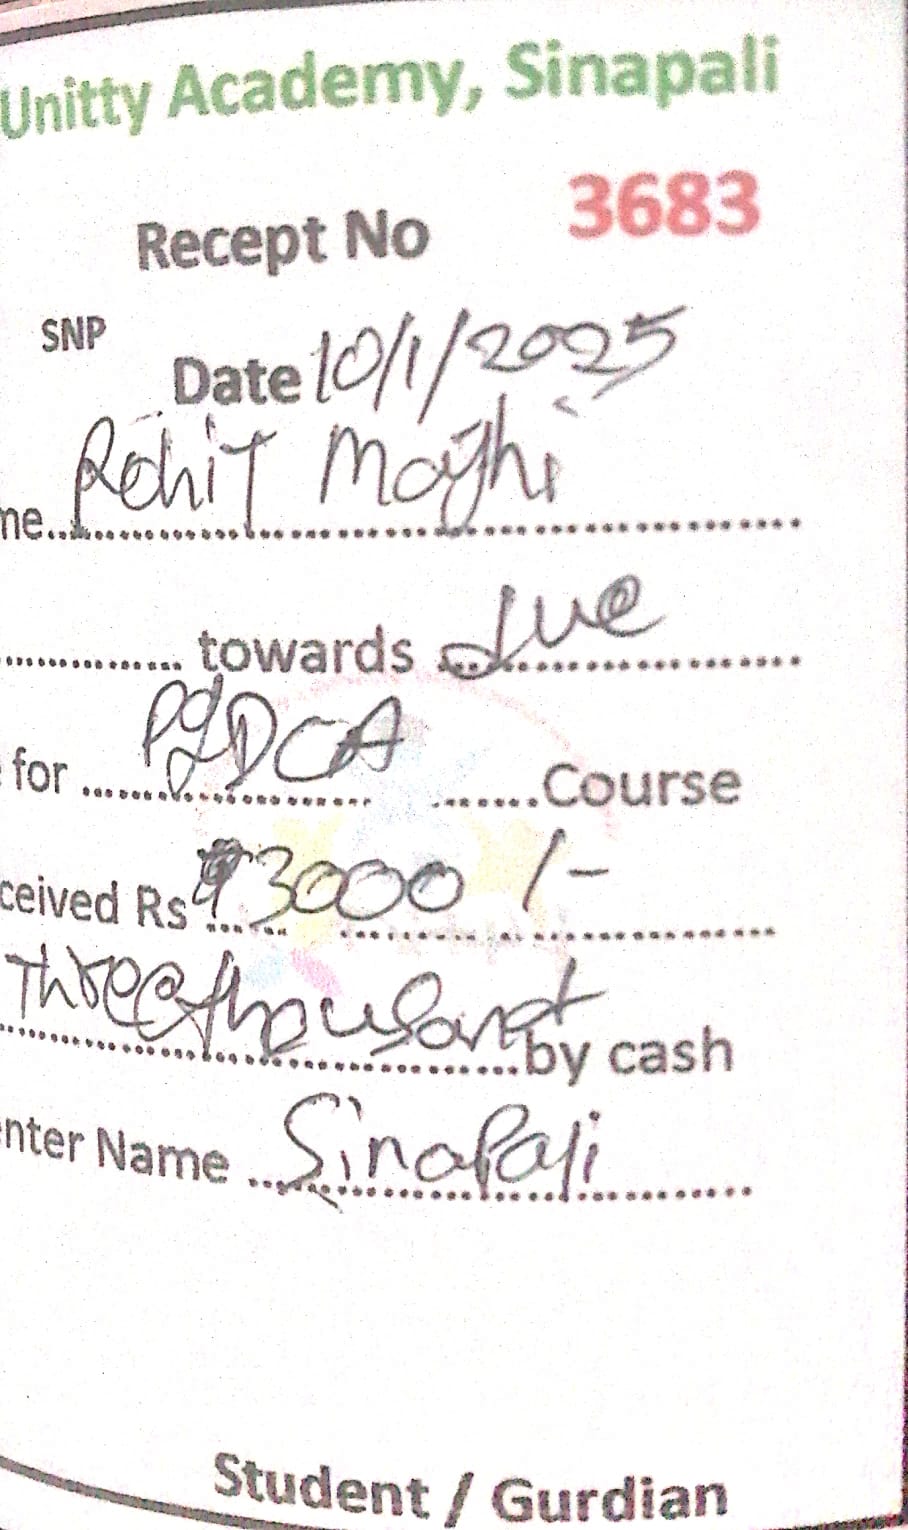 Unitty Academy, Sinapali
Recept No 3683
SNP
Date 10/1/2025
me Rohit Majhi
towards due
for PGDCA Course
ceived Rs 3000 /-
Three thousand by cash
nter Name Sinapali
Student / Gurdian